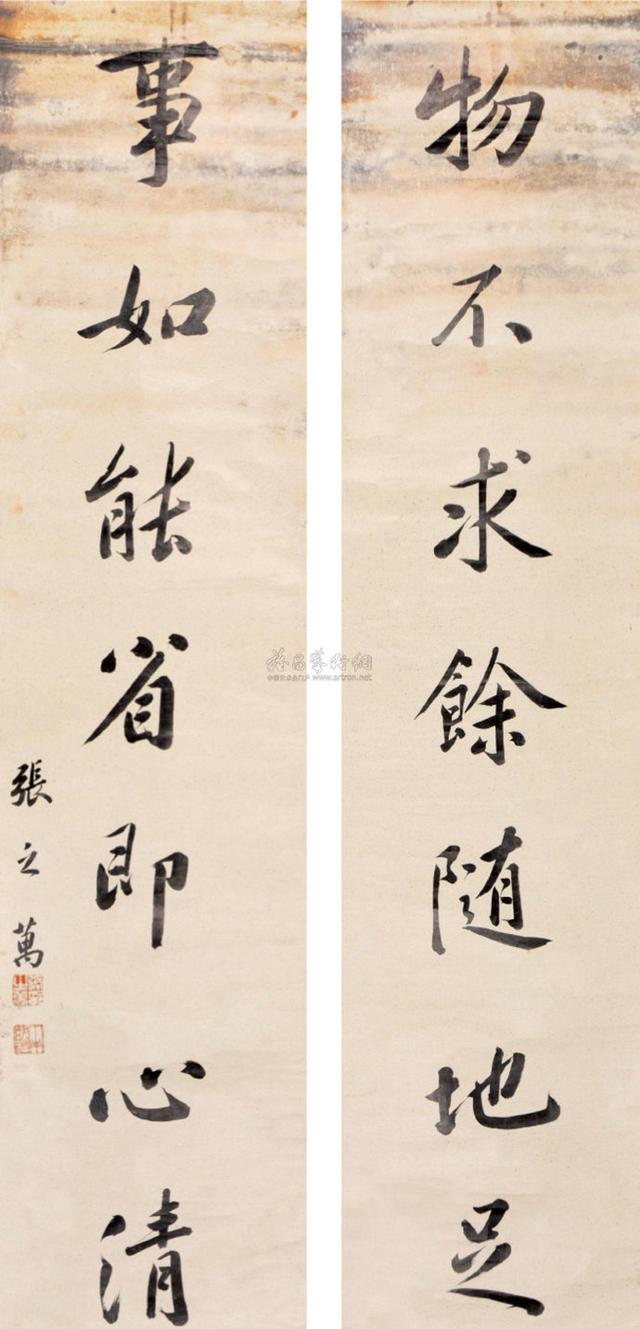 物不求餘随地足
事如能省即心清
張之萬
www.artron.net